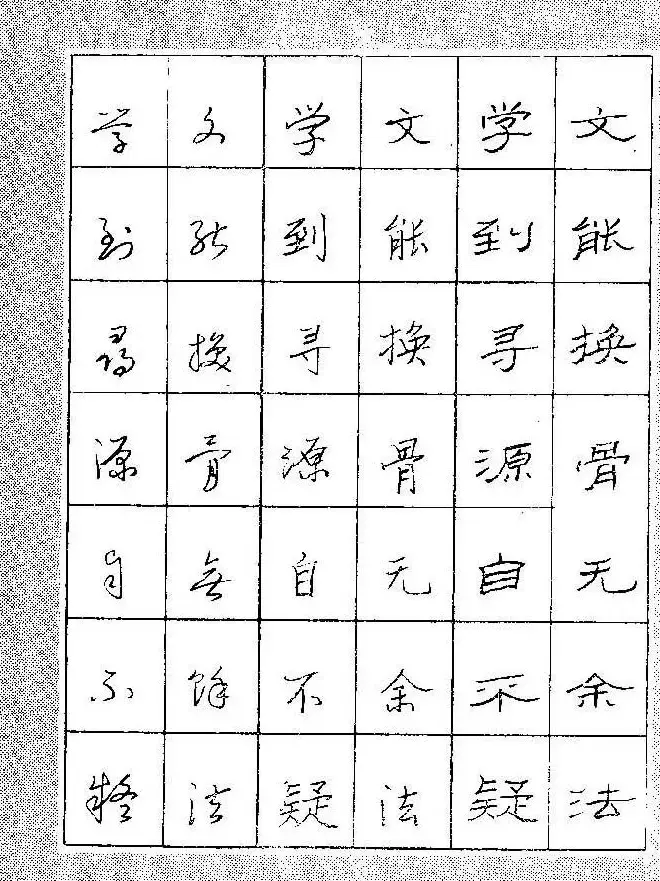 文能换骨无余法
学到寻源自不疑
文能换骨无余法
学到寻源自不疑
文能換骨無餘法
学到尋源自不疑